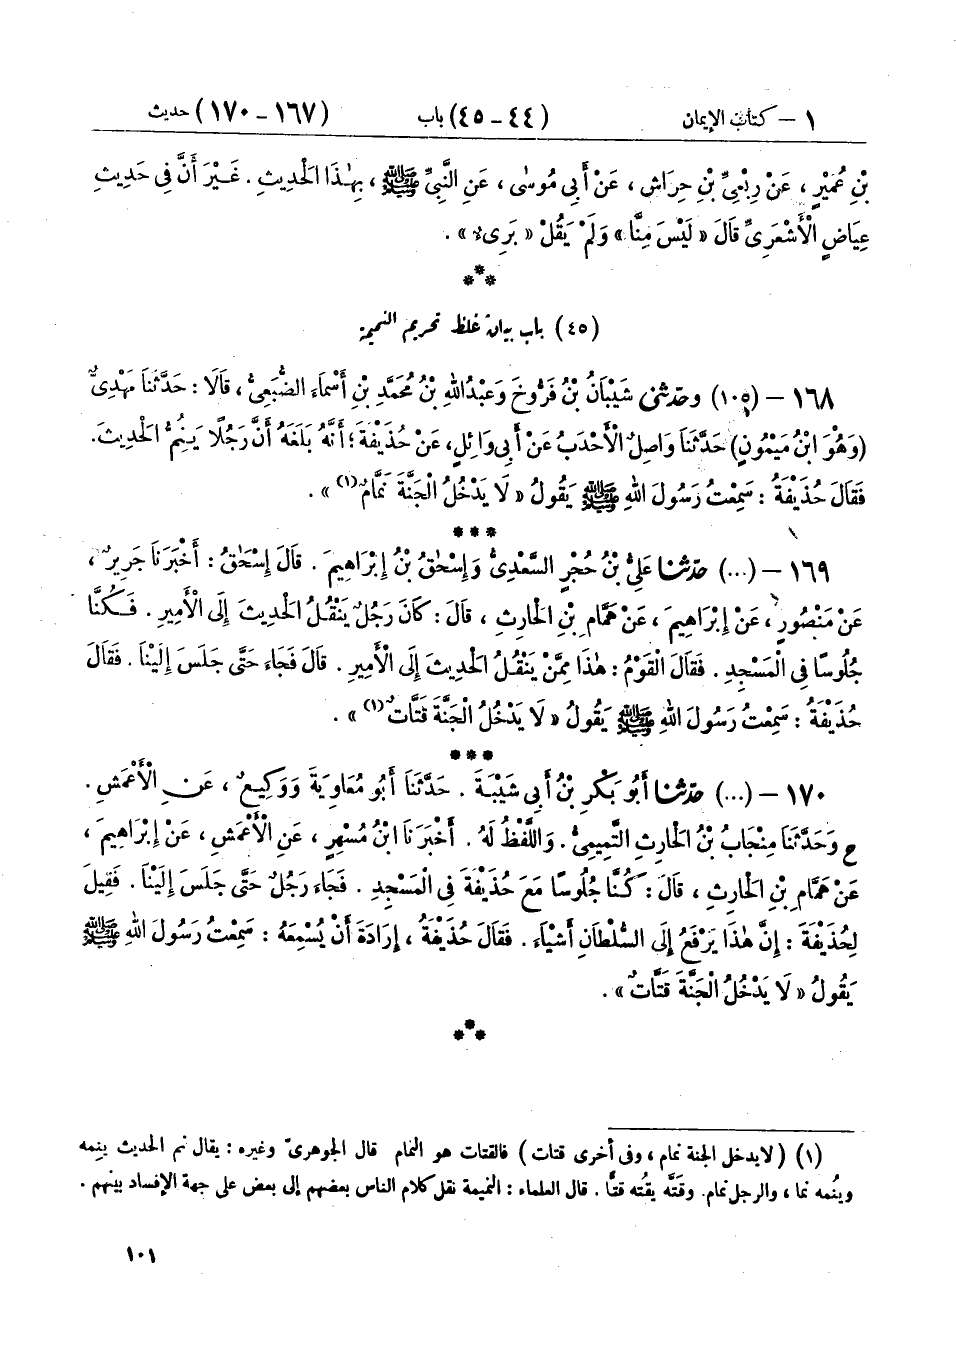 ١ – كتاب الإيمان (٤٤ – ٤٥) باب (١٦٧ – ١٧٠) حديث
بْنِ عُمَيْرٍ ، عَنْ رِبْعِيِّ بْنِ حِرَاشٍ ، عَنْ أَبِي مُوسَى ، عَنِ النَّبِيِّ ﷺ ، بِهٰذَا الْحَدِيثِ . غَيْرَ أَنَّ فِي حَدِيثِ
عِيَاضٍ الْأَشْعَرِيِّ قَالَ « لَيْسَ مِنَّا » وَلَمْ يَقُلْ « بَرِىءٌ » .
***
(٤٥) باب بيان غلظ تحريم النميمة
١٦٨ – (١٠٥) وحَدّثنى شَيْبَانُ بْنُ فَرُّوخَ وَعَبْدُاللهِ بْنُ مُحَمَّدِ بْنِ أَسْمَاءَ الضُّبَعِيُّ ، قَالَا : حَدَّثَنَا مَهْدِيٌّ
(وَهُوَ ابْنُ مَيْمُونٍ) حَدَّثَنَا وَاصِلٌ الْأَحْدَبُ عَنْ أَبِي وَائِلٍ، عَنْ حُذَيْفَةَ؛ أَنَّهُ بَلَغَهُ أَنَّ رَجُلًا يَنِمُّ الْحَدِيثَ.
فَقَالَ حُذَيْفَةُ : سَمِعْتُ رَسُولَ اللهِ ﷺ يَقُولُ « لَا يَدْخُلُ الْجَنَّةَ نَمَّامٌ (١) » .
***
١٦٩ – (...) حَدّثنا عَلِيُّ بْنُ حُجْرٍ السَّعْدِيُّ وَإِسْحٰقُ بْنُ إِبْرَاهِيمَ . قَالَ إِسْحَاقُ : أَخْبَرَنَا جَرِيرٌ ،
عَنْ مَنْصُورٍ ، عَنْ إِبْرَاهِيمَ ، عَنْ هَمَّامِ بْنِ الْحَارِثِ ، قَالَ : كَانَ رَجُلٌ يَنْقُلُ الْحَدِيثَ إِلَى الْأَمِيرِ . فَكُنَّا
جُلُوسًا فِي الْمَسْجِدِ . فَقَالَ الْقَوْمُ : هٰذَا مِمَّنْ يَنْقُلُ الْحَدِيثَ إِلَى الْأَمِيرِ . قَالَ فَجَاءَ حَتَّى جَلَسَ إِلَيْنَا . فَقَالَ
حُذَيْفَةُ : سَمِعْتُ رَسُولَ اللهِ ﷺ يَقُولُ « لَا يَدْخُلُ الْجَنَّةَ قَتَّاتٌ (١) » .
***
١٧٠ – (...) حَدّثنا أَبُو بَكْرِ بْنُ أَبِي شَيْبَةَ . حَدَّثَنَا أَبُو مُعَاوِيَةَ وَوَكِيعٌ ، عَنِ الْأَعْمَشِ .
ح وَحَدَّثَنَا مِنْجَابُ بْنُ الْحَارِثِ التَّمِيمِيُّ . وَاللَّفْظُ لَهُ . أَخْبَرَنَا ابْنُ مُسْهِرٍ ، عَنِ الْأَعْمَشِ ، عَنْ إِبْرَاهِيمَ ،
عَنْ هَمَّامِ بْنِ الْحَارِثِ ، قَالَ : كُنَّا جُلُوسًا مَعَ حُذَيْفَةَ فِي الْمَسْجِدِ . فَجَاءَ رَجُلٌ حَتَّى جَلَسَ إِلَيْنَا . فَقِيلَ
لِحُذَيْفَةَ : إِنَّ هٰذَا يَرْفَعُ إِلَى السُّلْطَانِ أَشْيَاءَ . فَقَالَ حُذَيْفَةُ ، إِرَادَةَ أَنْ يُسْمِعَهُ : سَمِعْتُ رَسُولَ اللهِ ﷺ
يَقُولُ « لَا يَدْخُلُ الْجَنَّةَ قَتَّاتٌ » .
***
(١) (لا يدخل الجنة نمام ، وفى أخرى قتات) فالقتات هو النمام قال الجوهرىّ وغيره : يقال نم الحديث ينِمه
وينُمه نما ، والرجل نمام. وقتّه يقُته قتًّا . قال العلماء : النميمة نقل كلام الناس بعضهم إلى بعض على جهة الإفساد بينهم .
١٠١